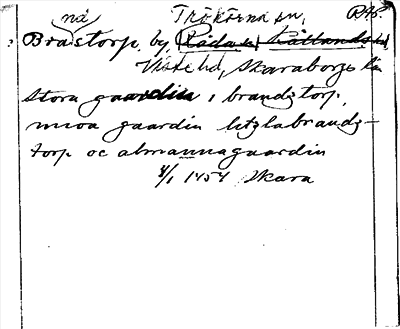 nå Trökörna sn, RAp.
Brastorp, by, Råda sn Kållands hd
Viste hd, Skaraborgs län
Stora gaardin i brandztorp,
mioa gaardin litzlabrandz-
torp oc almannagaardin
4/1 1454 Skara